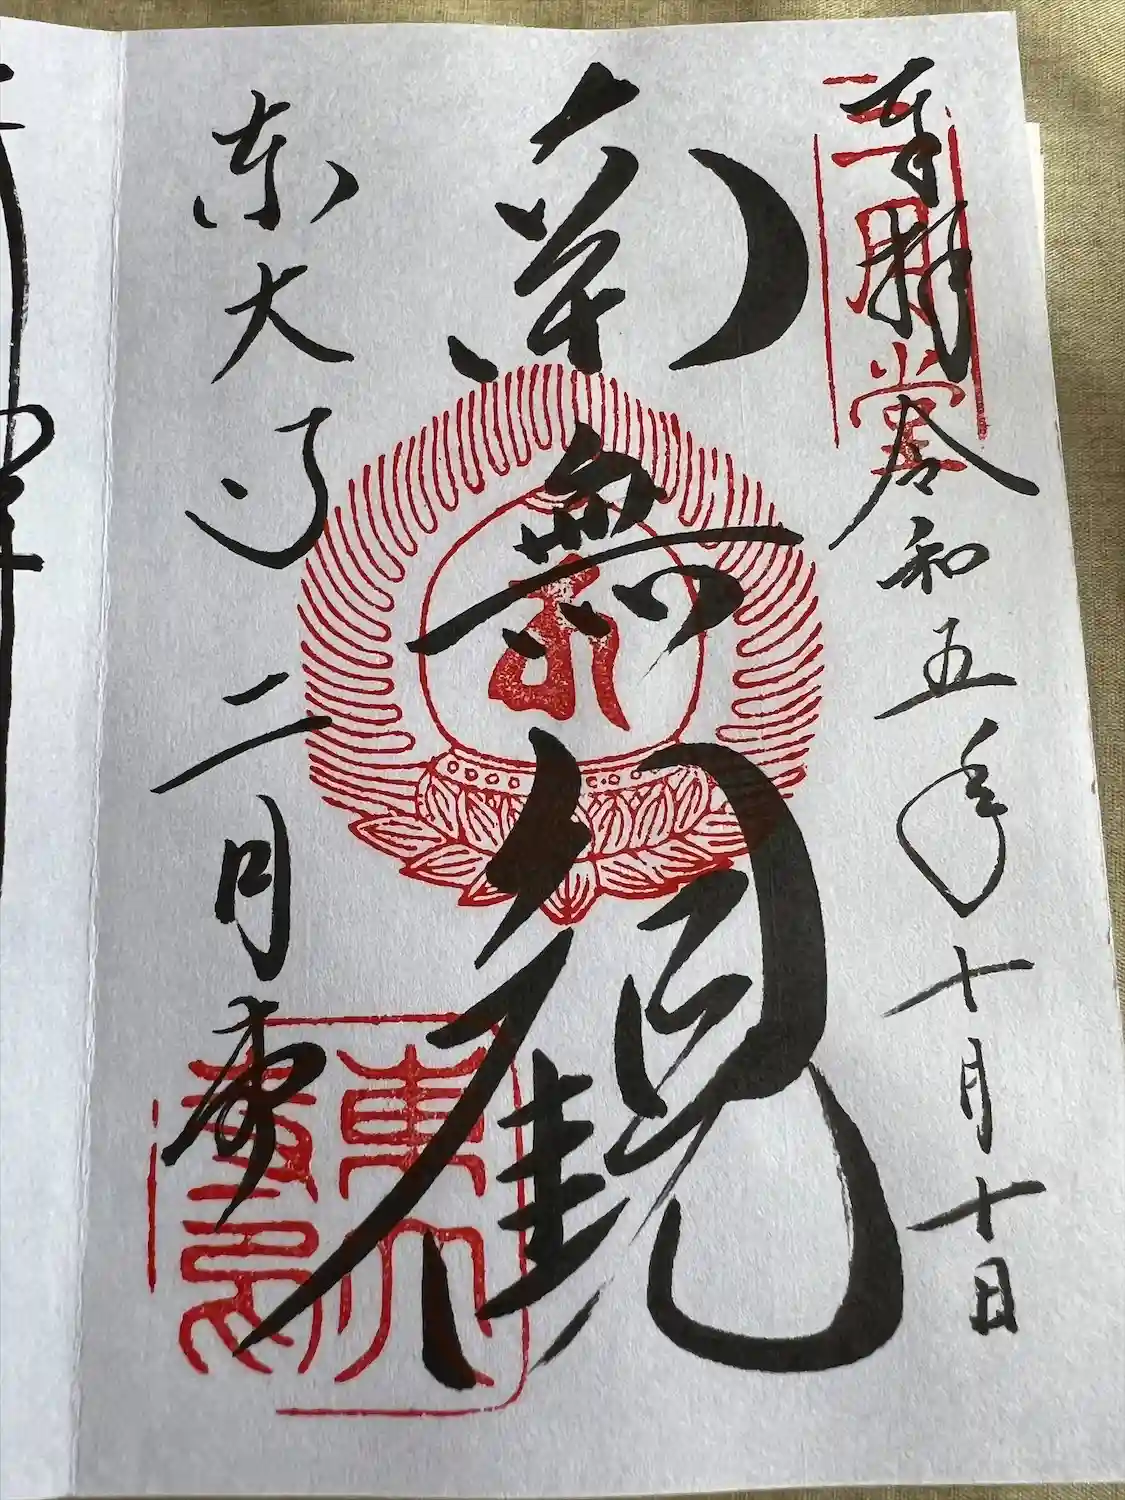 奉拝 令和五年十月十日
二月堂
南無観
東大寺 二月堂
東大
寺印